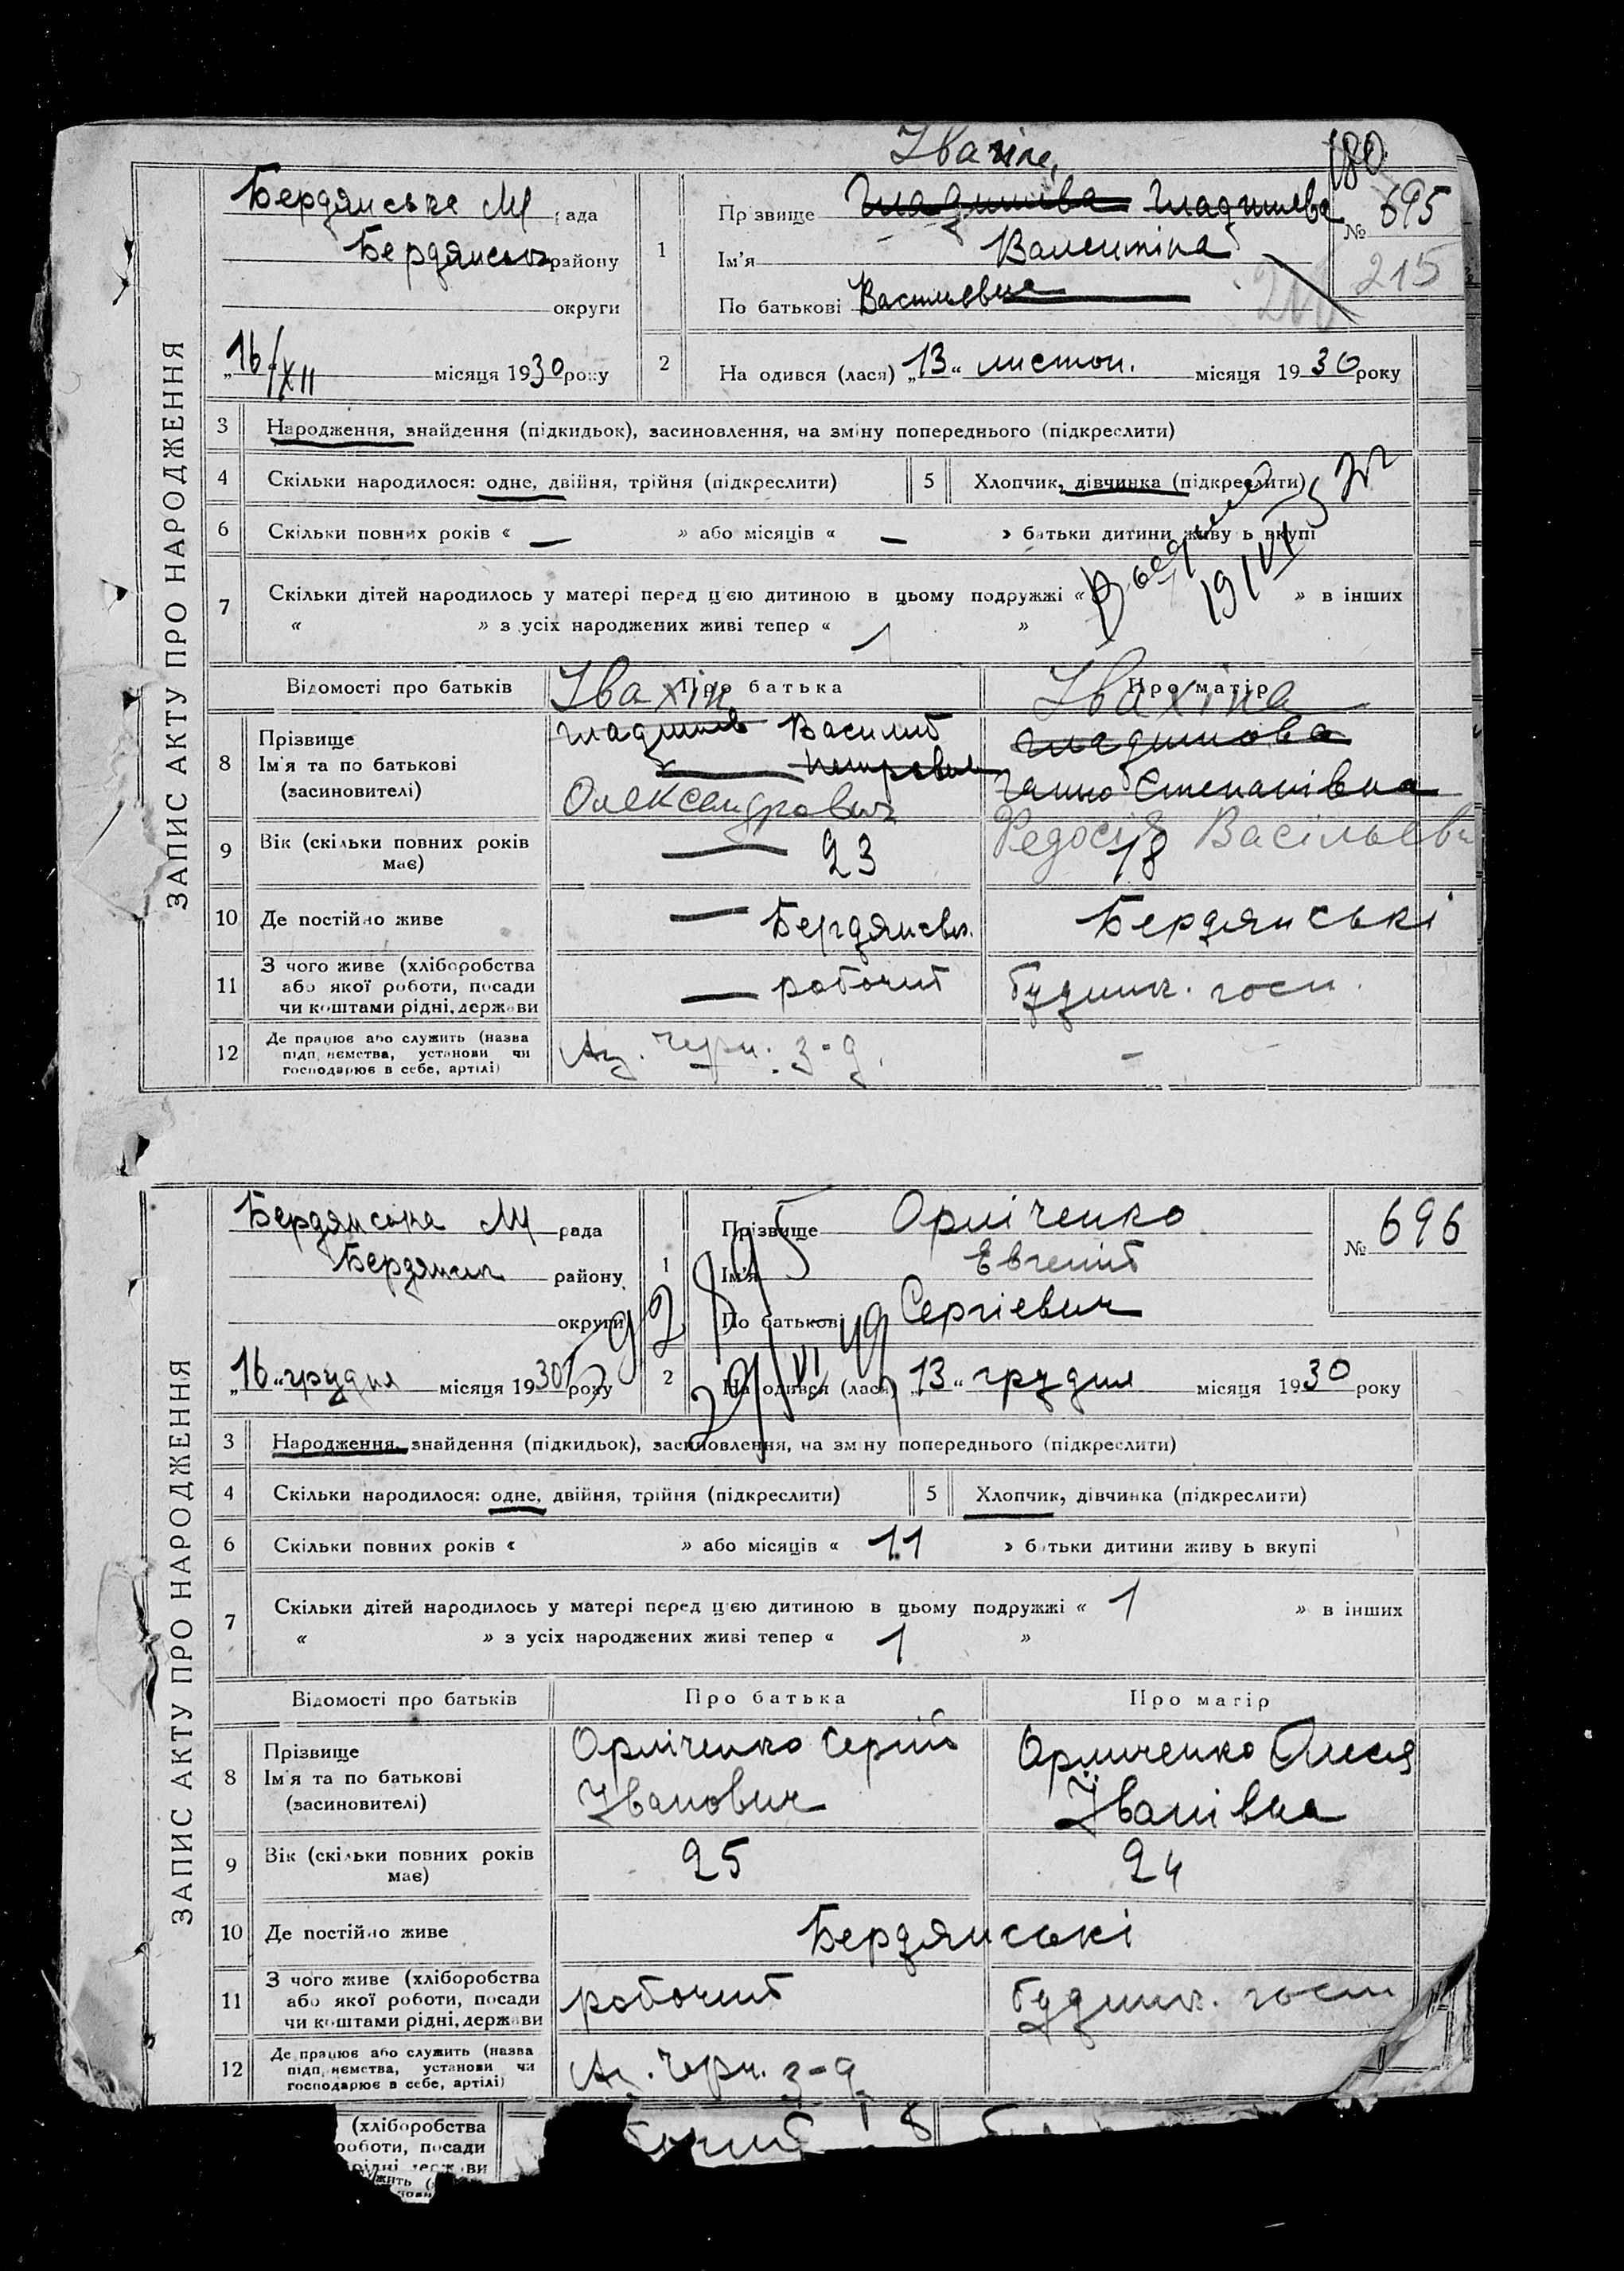 180
ЗАПИС АКТУ ПРО НАРОДЖЕННЯ
Бердянська МР рада
Бердянськ району
округи
16/XII місяця 1930 року
1
Прізвище Гладишева Гладишева
Ім'я Валентіна
По батькові Васильевна
№ 695
215
2
На одився (лася) „13“ листоп. місяця 1930 року
3 Народження, знайдення (підкидьок), засиновлення, на зміну попереднього (підкреслити)
4 Скільки народилося: одне, двійня, трійня (підкреслити)
5 Хлопчик, дівчинка (підкреслити)
6 Скільки повних років « — » або місяців « — » батьки дитини живу ь вкупі
19/VI
7 Скільки дітей народилось у матері перед цією дитиною в цьому подружжі « » в інших
« » з усіх народжених живі тепер « 1 »
Відомості про батьків Про батька Про матір
Івахін Івахіна
8 Прізвище
Ім'я та по батькові
(засиновителі)
Гладишев Василий
Петрович
Олександрович
Гладишова
Ганно Степанівна
Федосія Васільевн
9 Вік (скільки повних років
має)
23 18
10 Де постійно живе Бердянськ. Бердянські
11 З чого живе (хліборобства
або якої роботи, посади
чи коштами рідні, держави
робочий будинк. госп.
12 Де працює або служить (назва
підпріємства, установи чи
господарює в себе, артілі)
Аз. Черн. з-д. -
ЗАПИС АКТУ ПРО НАРОДЖЕННЯ
Бердянська МР рада
Бердянськ району
округи
„16“ грудня місяця 1930 року
1
Прізвище Орліченко
Ім'я Евгений
По батькові Сергіевич
№ 696
2
На одився (лася) „13“ грудня місяця 1930 року
29/VI 49
3 Народження, знайдення (підкидьок), засиновлення, на зміну попереднього (підкреслити)
4 Скільки народилося: одне, двійня, трійня (підкреслити)
5 Хлопчик, дівчинка (підкреслити)
6 Скільки повних років « » або місяців « 11 » батьки дитини живу ь вкупі
7 Скільки дітей народилось у матері перед цією дитиною в цьому подружжі « 1 » в інших
« » з усіх народжених живі тепер « 1 »
Відомості про батьків Про батька Про матір
8 Прізвище
Ім'я та по батькові
(засиновителі)
Орліченко Сергій
Іванович
Орличенко Олеся
Іванівна
9 Вік (скільки повних років
має)
25 24
10 Де постійно живе Бердянські
11 З чого живе (хліборобства
або якої роботи, посади
чи коштами рідні, держави
робочий будинк. госп
12 Де працює або служить (назва
підпріємства, установи чи
господарює в себе, артілі)
Аз. Черн. з-д
(хліборобства
роботи, посади